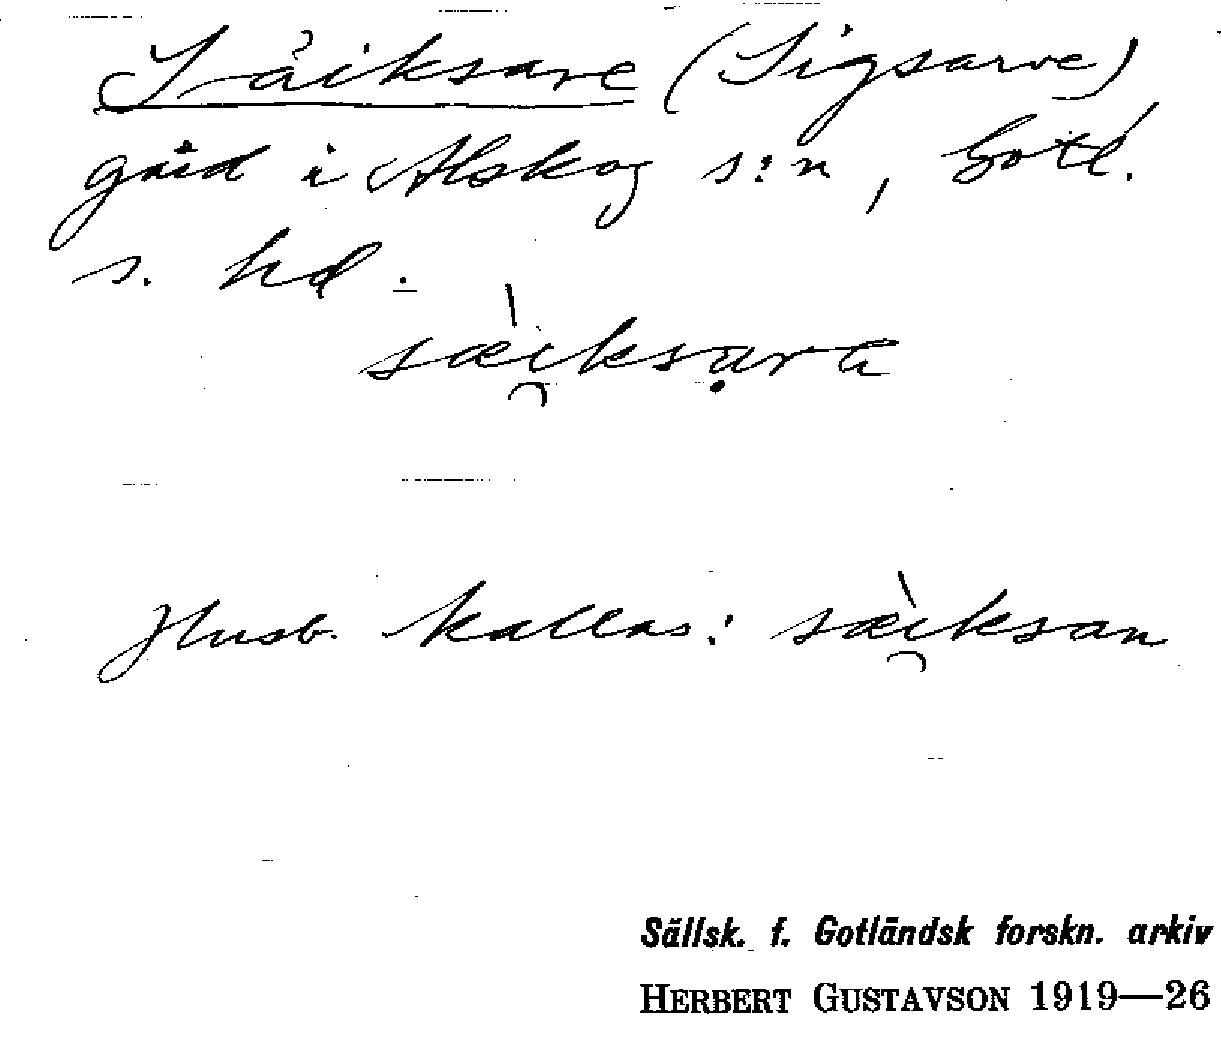 Såiksarve (Sigsarve)
gård i Alskog s:n, Gotl.
s. hd.
sæi̯ksạrvɛ
Husb. kallas: sæi̯ksan
Sällsk. f. Gotländsk forskn. arkiv
HERBERT GUSTAVSON 1919—26